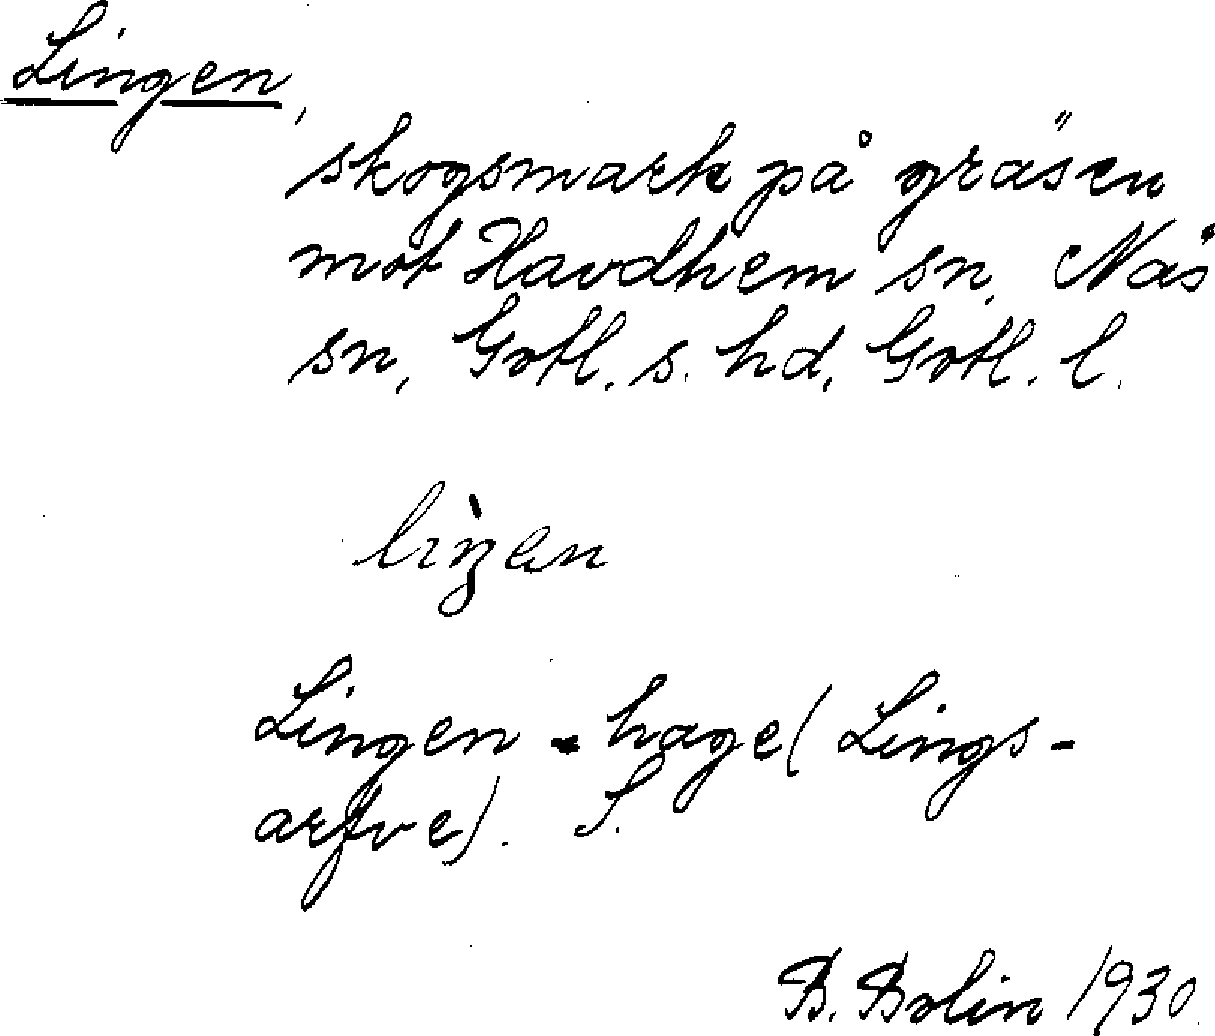 Lingen,
skogsmark på gräsen
mot Havdhem sn, Näs
sn, Gotl. s. hd, Gotl. l.
lìŋen
Lingen - hage (Lings-
arfve). S.
B. Bolin 1930.